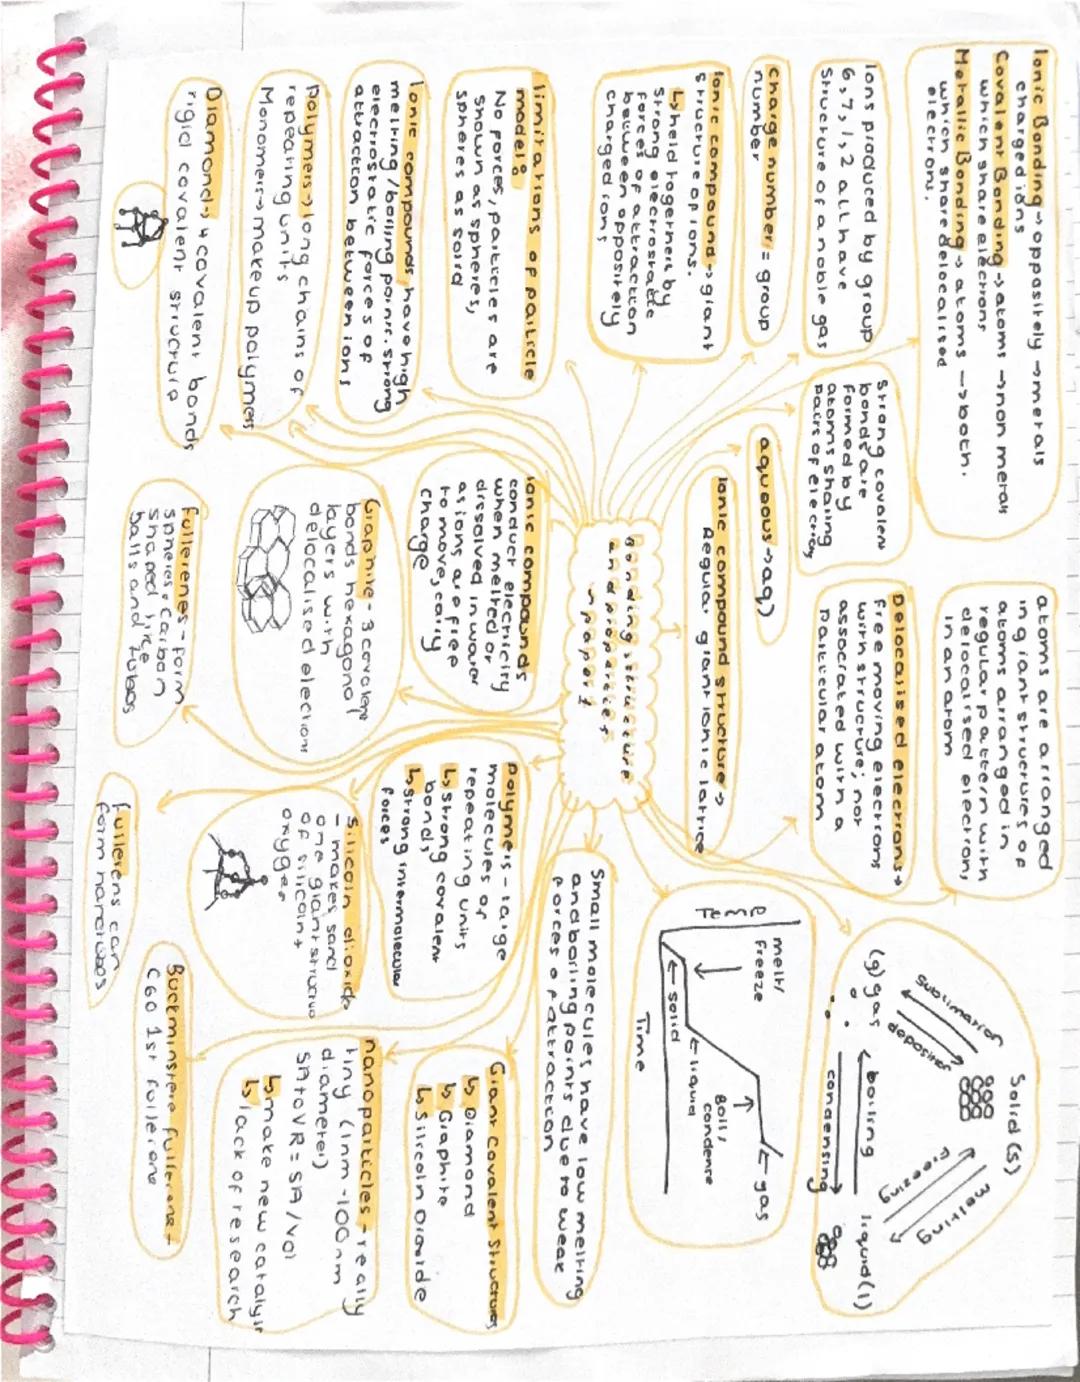 Ionic Bonding → oppositely → metals
charged ions
Covalent Bonding → atoms → non metals
which share electrons
Metallic Bonding → atoms → both.
which share delocalised
electrons.
Ions produced by group
6, 7, 1, 2 all have
structure of a noble gas
charge number = group
number
Ionic compound → giant
structure of ions.
↳ held together by
strong electrostatic
forces of attraction
between oppositely
charged ions
limitations of particle
models
No forces, particles are
shown as spheres,
spheres as solid
Ionic compounds have high
melting/boiling point. strong
electrostatic forces of
attraction between ions
polymers → long chains of
repeating units
Monomers → make up polymers
Diamond → 4 covalent bonds
rigid covalent structure
strong covalent
bonds are
formed by
atoms sharing
pairs of electrons
aqueous → aq)
Ionic compound structure →
Regular giant ionic lattice
Bonding, structure
and properties
paper 1
ionic compounds
conduct electricity
when melted or
dissolved in water
as ions are free
to move, carry
charge
Graphite - 3 covalent
bonds hexagonal
layers with
delocalised electrons
fullerenes - form
spheres. carbon
shaped like
balls and tubes
atoms are arranged
in giant structures of
atoms arranged in
regular pattern with
delocalised electrons
in an atom
Delocalised electrons →
free moving electrons
with structure; not
associated with a
particular atom
Solid (s)
Sublimation
deposition
freezing
melting
(g) gas
boiling
condensing
liquid (l)
Temp
melt/
freeze
← solid
← liquid
boil/
condence
← gas
Time
Small molecules have low melting
and boiling points due to weak
forces of attraction
polymers - large
molecules of
repeating units
↳ strong covalent
bonds
↳ strong intermolecular
forces
silicoin dioxide
- makes sand
one giant structure
of silicoin +
oxygen
fullerens can
form nanotubes
Giant Covalent Structures
↳ Diamond
↳ Graphite
↳ Silicoin Dioxide
nanoparticles - really
tiny (1nm - 100nm
diameter)
SA to VR = SA / vol
↳ make new catalyst
↳ lack of research
Buckminstere fullerene →
C60 1st fullerene